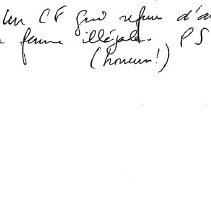 Un CF qui refuse d'a
femme illégale. PS
(honneur!)